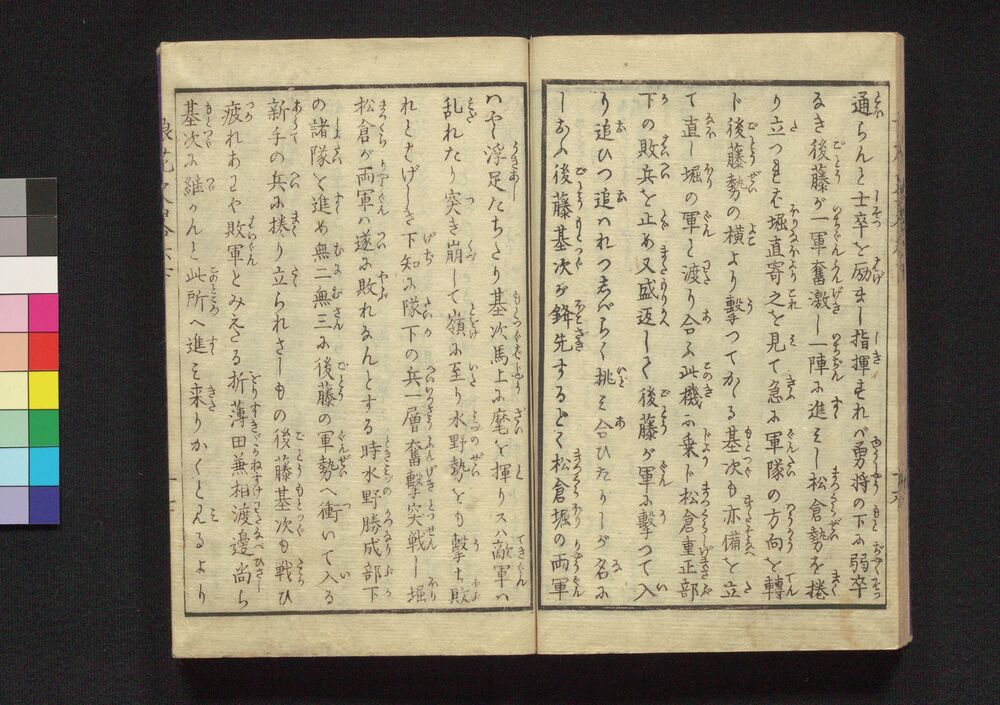 通らんと士卒を励まし指揮すれバ勇将の下に弱卒
るき後藤が一軍奮激し一陣に進ミし松倉勢を捲
り立つれバ堀直寄之を見て急に軍隊の方向を轉
ト後藤勢の横より撃つてかゝる基次も亦備を立
て直し堀の軍と渡り合ふ此機に乗ト松倉重正部
下の敗兵を止め又盛返しく後藤が軍に撃つて入
り追ひつ追ハれつ志ばらく挑ミ合ひたりしが名に
しおふ後藤基次が鋒先するどく松倉堀の両軍
ハや浮足たちたり基次馬上に麾を揮りスハ敵軍ハ
乱れたり突き崩して嶺に至り水野勢をも撃ち敗
れとはげしき下知に隊下の兵一層奮撃突戦し堀
松倉が両軍ハ遂に敗れなんとする時水野勝成部下
の諸隊を進め無二無三に後藤の軍勢へ衝いて入る
新手の兵に捲り立られさしもの後藤基次も戦ひ
疲れおにや敗軍とみえたる折薄田兼相渡邊尚ら
基次に継がんと此所へ進ミ来りかくと見るより